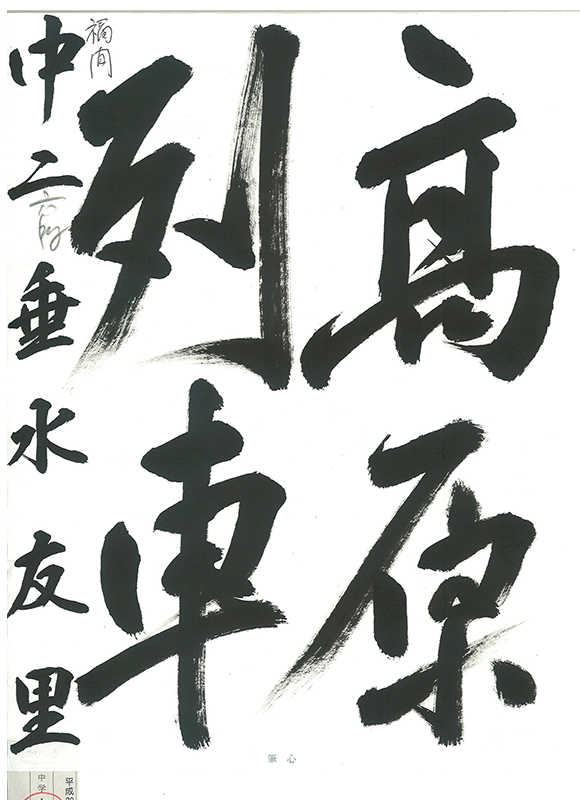 高原
列車
中二 垂水友里
福間
筆心
平成2
中学